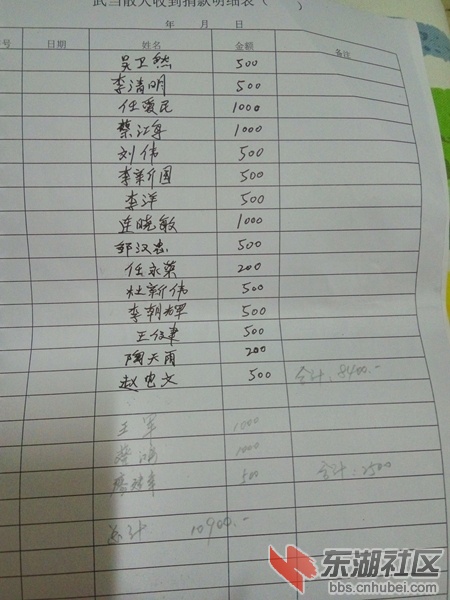 武当散人收到捐款明细表（　　）
年　月　日
号　日期　姓名　金额　备注
吴卫然　500
李清明　500
任爱民　1000
蔡江宁　1000
刘伟　500
李新国　500
李洋　500
连晓敏　1000
邹汉忠　500
任永荣　200
杜新伟　500
李朝辉　500
王　500
陶天雨　200
赵忠文　500　合计：8400.-
王军　1000
1000
500　合计：2500
总计　10900.-
东湖社区
bbs.cnhubei.com